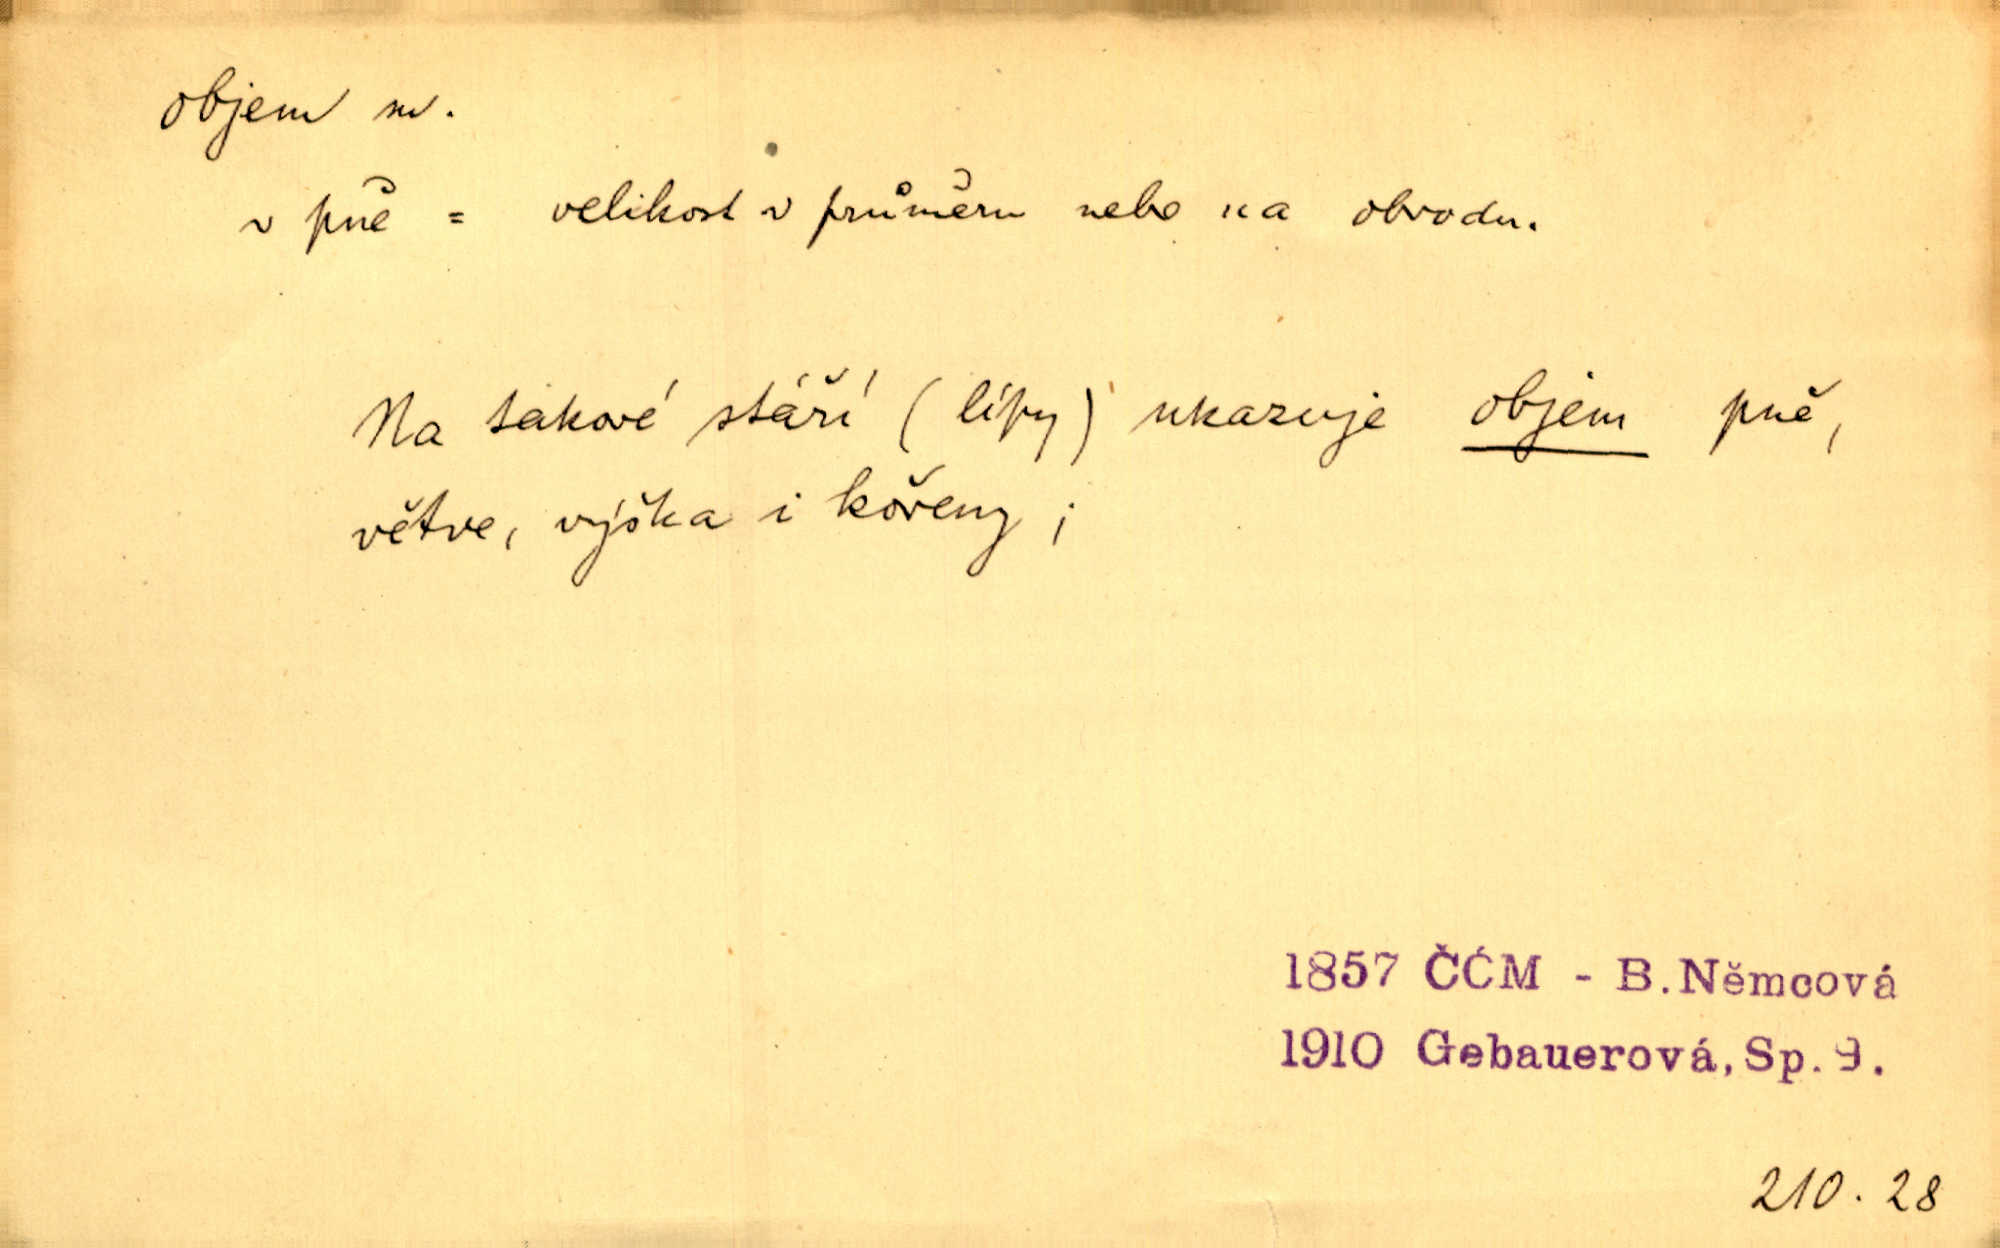 objem m.
v pně = velikost v průměru nebo na obvodu.
Na takové stáří (lípy) ukazuje objem pně,
větve, výška i kořeny;
1857 ČČM - B.Němcová
1910 Gebauerová, Sp. 9.
210. 28